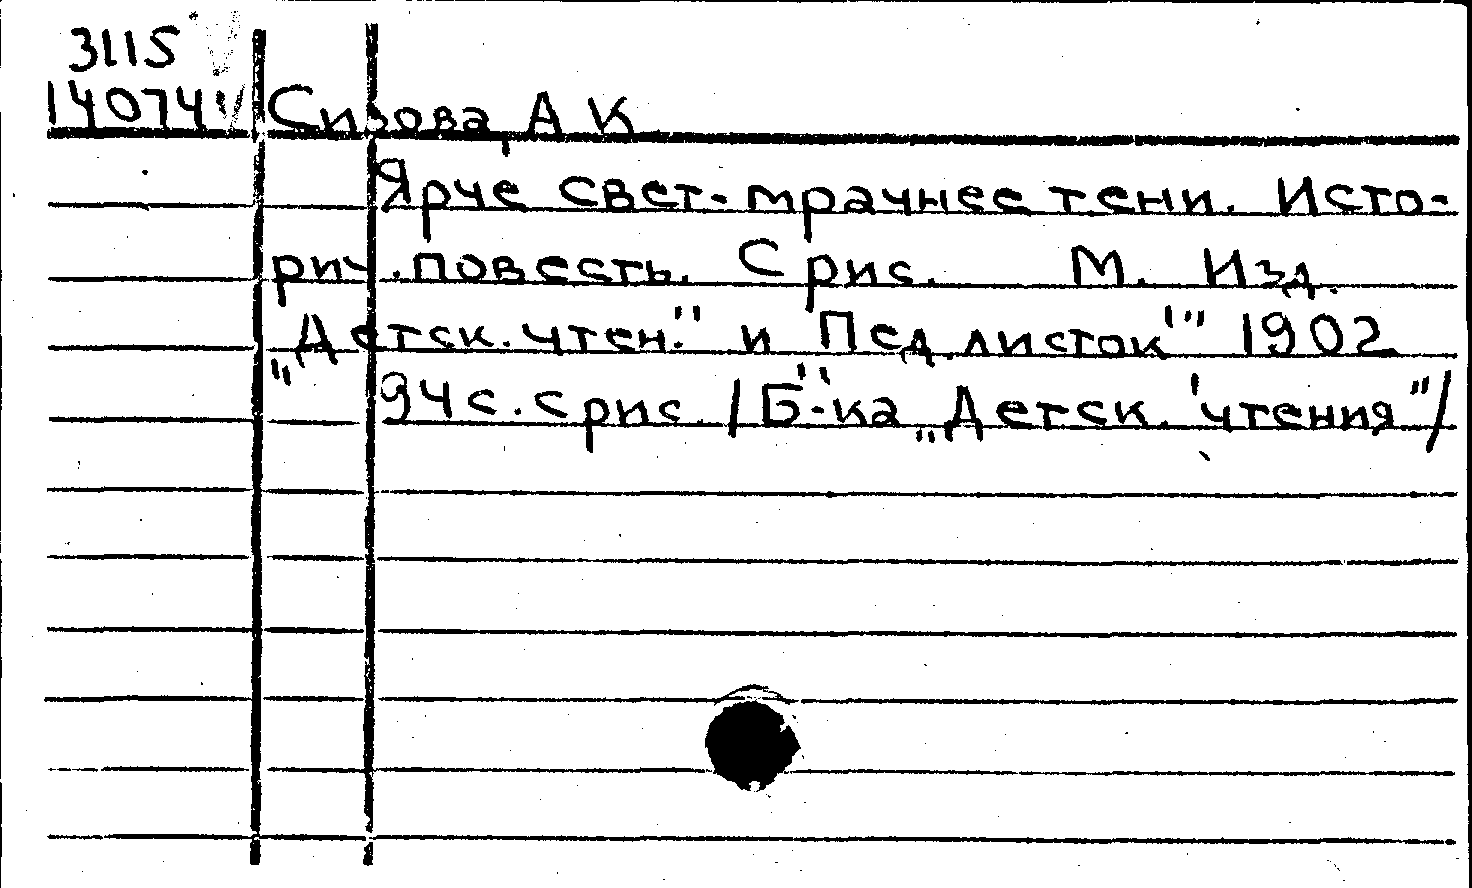 3115
14074 Сизова, А К
Ярче свет-мрачнее тени. Исто-
рич. повесть. С рис. М. Изд.
„Детск. чтен." и "Пед. листок" 1902
94 с. с рис. /Б-ка „Детск. чтения"/